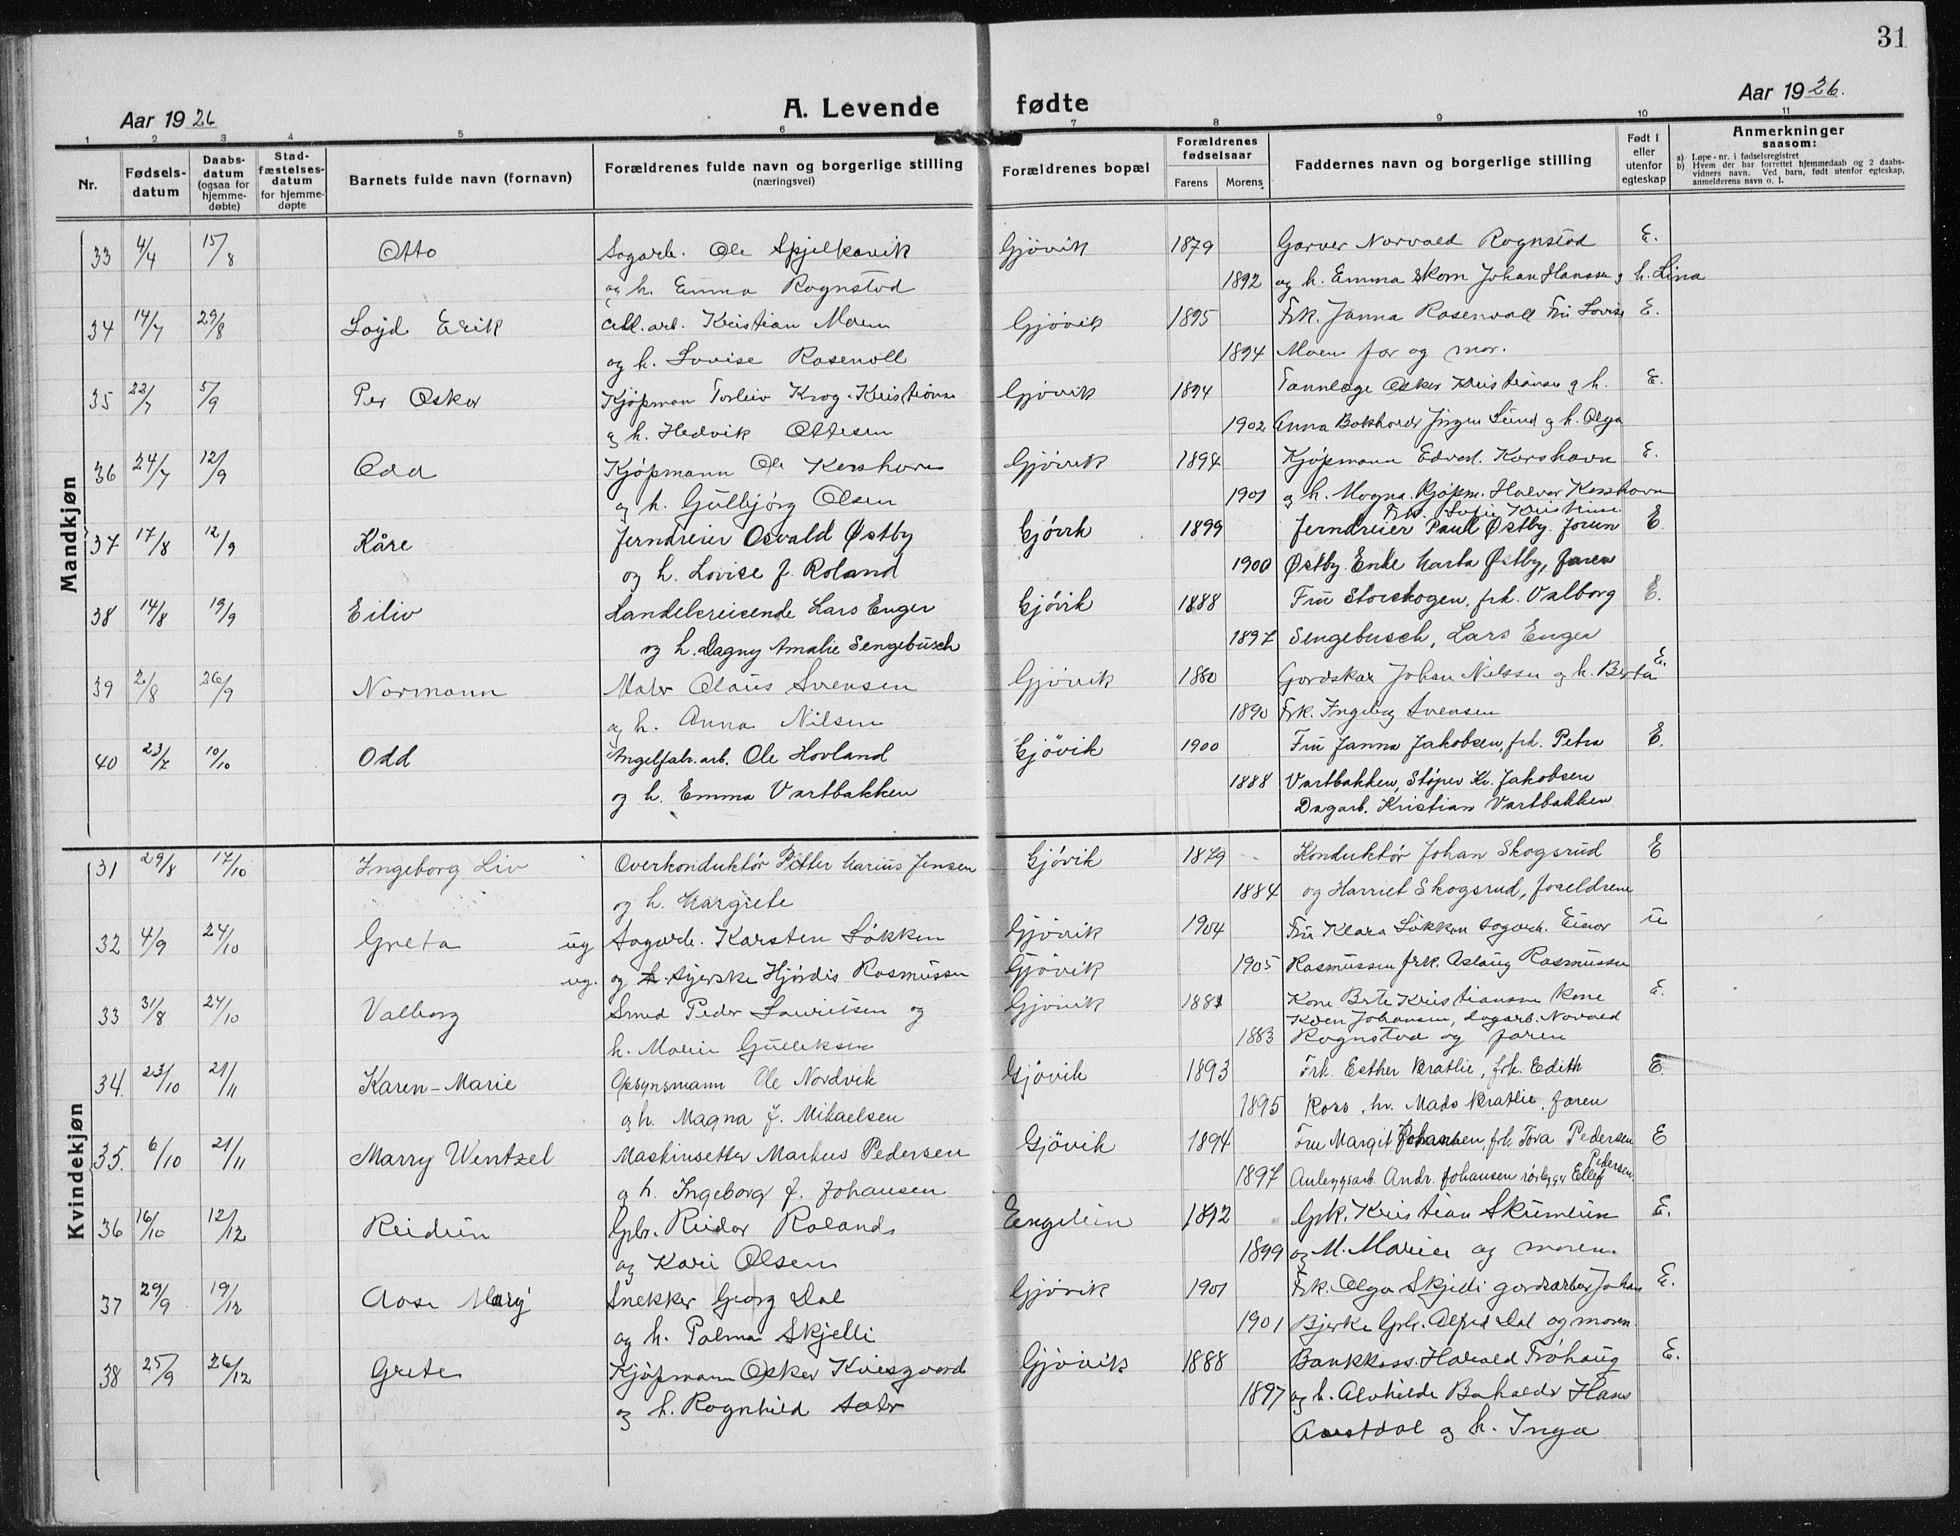 31
Aar 1926
A. Levende fødte
Aar 1926.
1 2 3 4 5 6 7 8 9 10 11
Nr.
Fødsels-datum
Daabs-datum (ogsaa for hjemme-døbte)
Stad-fæstelses-datum for hjemme-døpte
Barnets fulde navn (fornavn)
Forældrenes fulde navn og borgerlige stilling (næringsvei)
Forældrenes bopæl
Forældrenes fødselsaar
Farens Morens
Faddernes navn og borgerlige stilling
Født i eller utenfor egteskap
Anmerkninger saasom:
a) Løpe-nr. i fødselsregistret
b) Hvem der har forrettet hjemmedaab og 2 daabsvidners navn. Ved barn, født utenfor egteskap, anmelderens navn o. l.
Mandkjøn
33 4/4 15/8 Otto Sagarb. Ole Spjelkavik Gjøvik 1879 Garver Norvald Rognstad E.
og h. Emma Rognstad 1892 og h. Emma Skom Johan Hanssen g h. Lina
34 14/7 29/8 Loyd Erik Kristian Moen Gjøvik 1895 Frk. Janna Rosenvall Fru Lovise E.
og h. Lovise Rosenvoll 1894 Moen far og mor.
35 22/7 5/9 Per Oskar Kjøpman Torleiv Krog-Kristianse Gjøvik 1894 Tannlæge Oskar Kristiansen g h. E.
og h. Hedvik Ottesen 1902 Anna Bokholder Jørgen Lund g h. Olga
36 24/7 12/9 Odd Kjøpmann Ole Korshavn Gjøvik 1894 Kjøpmann Edvard Korshavn E.
og h. Gulbjørg Olsen 1901 g h. Magna. Kjøpm. Halvor Korshavn
Frk. Sofie Kristiansen
37 17/8 12/9 Kåre Jerndreier Osvald Østby Gjøvik 1899 Jerndreier Paul Østby. Jorun E.
og h. Lovise f. Roland 1900 Østby. Enke Marta Østby, faren
38 14/8 19/9 Eiliv Handelsreisende Lars Enger Gjøvik 1888 Fru Storskogen, frk. Valborg E.
og h. Dagny Amalie Sengebusch 1897 Sengebusch, Lars Enger
39 2/8 26/9 Normann Maler Olaus Svensen Gjøvik 1880 Gardskar Johan Nilssen g h. Berta E.
og h. Anna Nilsen 1890 Frk. Ingeborg Svensen
40 23/7 10/10 Odd Angelfabr.arb. Ole Hovland Gjøvik 1900 Fru Janna Jakobsen, frk. Petra E.
og h. Emma Vartbakken 1888 Vartbakken, Støper Kr. Jakobsen
Dagarb. Kristian Vartbakken
Kvindekjøn
31 29/8 17/10 Ingeborg Liv Overkonduktør Petter Marius Jensen Gjøvik 1879 Konduktør Johan Skogsrud E
og h. Margrete 1884 og Harriet Skogsrud, foreldrene
32 4/9 24/10 Greta ug Sagarb. Karsten Løkken Gjøvik 1904 Fru Klara Løkken sagarb. Einar u
ug. og syerske Hjørdis Rasmussen Gjøvik 1905 Rasmussen frk. Aslaug Rasmussen
33 31/8 24/10 Valborg Smed Peder Lauritsen og Gjøvik 1881 Kone Berte Kristiansen Kone E.
Johansen, dagarb. Norvald
h. Marie Gulliksen 1883 Rognstad og faren
34. 23/10 21/11 Karen-Marie Opsynsmann Ole Nordvik Gjøvik 1893 Frk. Esther Bratlie, frk. Edith E.
og h. Magna f. Mikaelsen 1895 Ross, hr. Mads Bratlie, faren
35. 6/10 21/11 Marry Wentzel Maskinsetter Markus Pedersen Gjøvik 1894 Fru Margit Johansen, frk. Tora Pedersen E
og h. Ingeborg f. Johansen 1897 Anleggsarb. Andr. Johansen rørlegger Edlif Pedersen
36 16/10 12/12 Reidun Gbr. Reidar Roland Engelien 1892 Gbr. Kristian Skumlien E.
og Kari Olsen 1899 og M. Marie og moren.
37 29/9 19/12 Aase Mary Snekker Georg Dal Gjøvik 1901 Frk. Olga Skjelli gardsarber Johan E.
og h. Palma Skjelli 1901 Bjerke Gbr. Alfred Dal og moren.
38 25/9 26/12 Grete Kjøpmann Oskar Kviesgaard Gjøvik 1888 Bankkass. Harald Frøhaug E.
og h. Ragnhild 1897 og h. Alvhilde Hans
Aarstdal og h. Inga